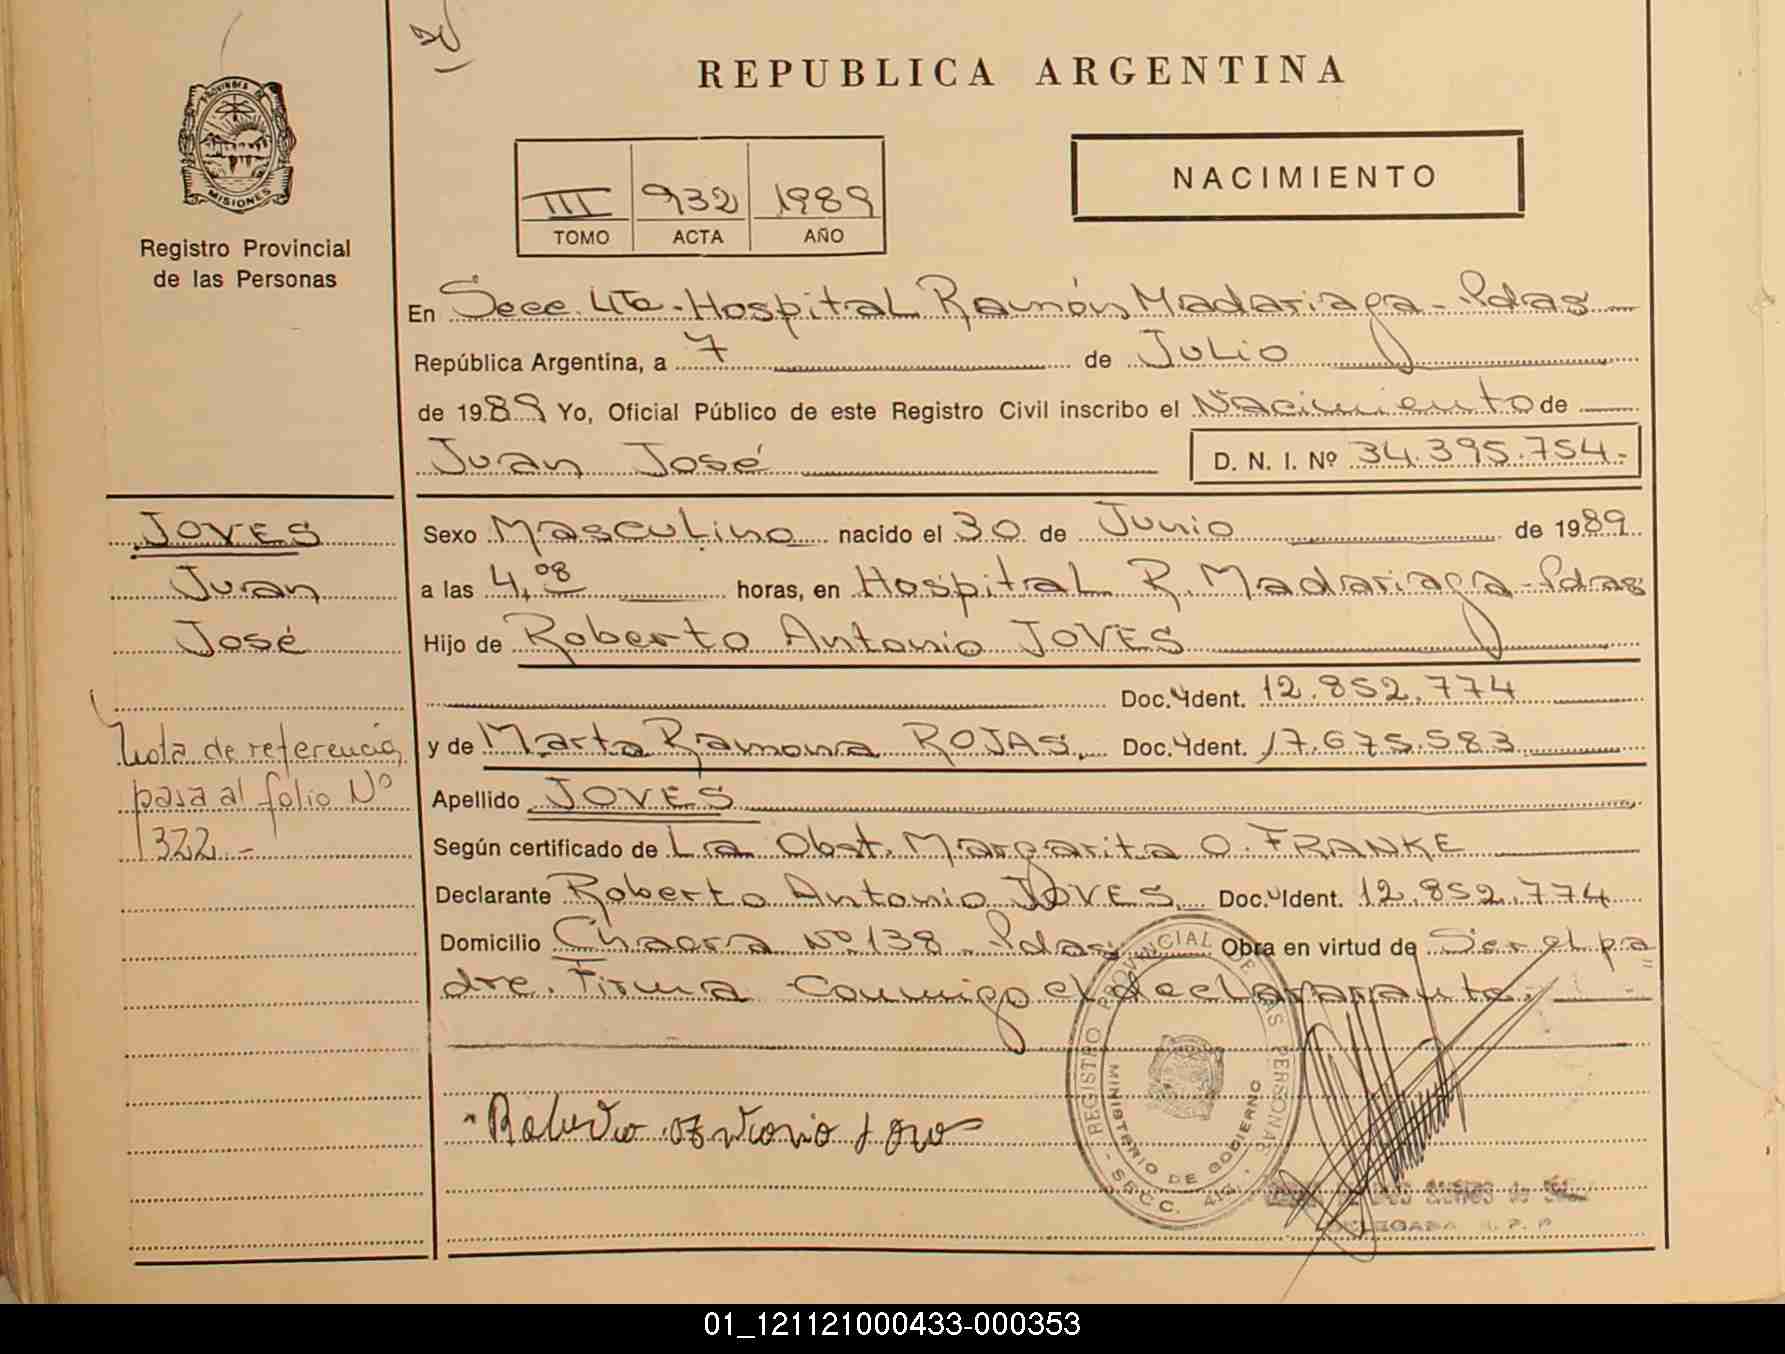 REPUBLICA ARGENTINA
PROVINCIA DE
MISIONES
Registro Provincial
de las Personas
III 932 1989
TOMO ACTA AÑO
NACIMIENTO
En Secc. 4ta. Hospital Ramón Madariaga - Pdas
República Argentina, a 7 de Julio
de 1989 Yo, Oficial Público de este Registro Civil inscribo el Nacimiento de
Juan José D. N. I. Nº 34.395.754.-
JOVES
Juan
José
Nota de referencia
pasa al folio Nº
322.-
Sexo Masculino nacido el 30 de Junio de 1989
a las 4,08 horas, en Hospital R. Madariaga - Pdas
Hijo de Roberto Antonio JOVES
Doc. Ident. 12.852.774
y de Marta Ramona ROJAS. Doc. Ident. 17.675.583
Apellido JOVES
Según certificado de La Obst. Margarita O. FRANKE
Declarante Roberto Antonio JOVES Doc. Ident. 12.852.774
Domicilio Chacra Nº 138 - Pdas. Obra en virtud de Ser el pa
dre. Firma conmigo el declararante.
REGISTRO PROVINCIAL DE LAS PERSONAS
MINISTERIO DE GOBIERNO
DELEGADA R. P. P
01_121121000433-000353